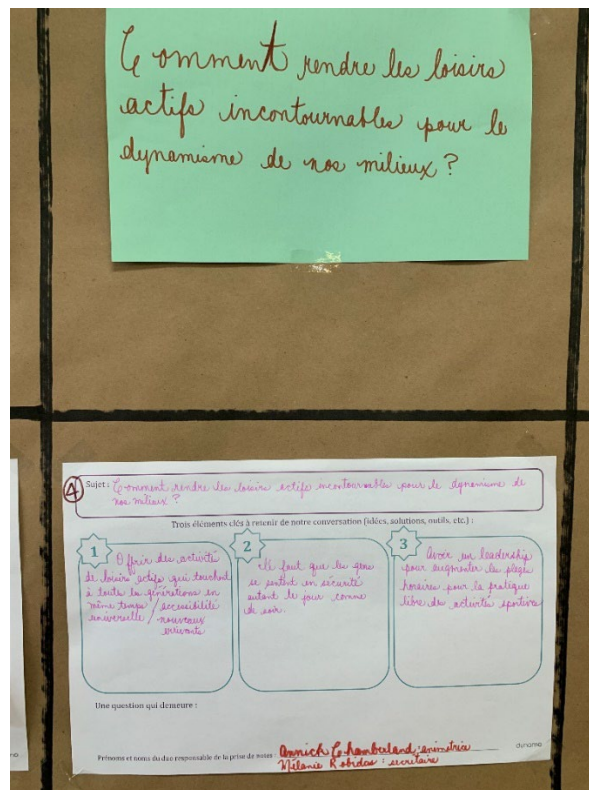 Comment rendre les loisirs
actifs incontournables pour le
dynamisme de nos milieux ?
4
Sujet : Comment rendre les loisirs actifs incontournables pour le dynamisme de
nos milieux ?
Trois éléments clés à retenir de notre conversation (idées, solutions, outils, etc.) :
1
Offrir des activités
de loisirs actifs qui touchent
à toutes les générations en
même temps / accessibilité
universelle / nouveaux
arrivants
2
Il faut que les gens
se sentent en sécurité
autant le jour comme
de soir.
3
Avoir un leadership
pour augmenter les plages
horaires pour la pratique
libre des activités sportives
Une question qui demeure :
Prénoms et noms du duo responsable de la prise de notes : Annick Chamberland, animatrice
Mélanie Robidas : secrétaire
dynamo